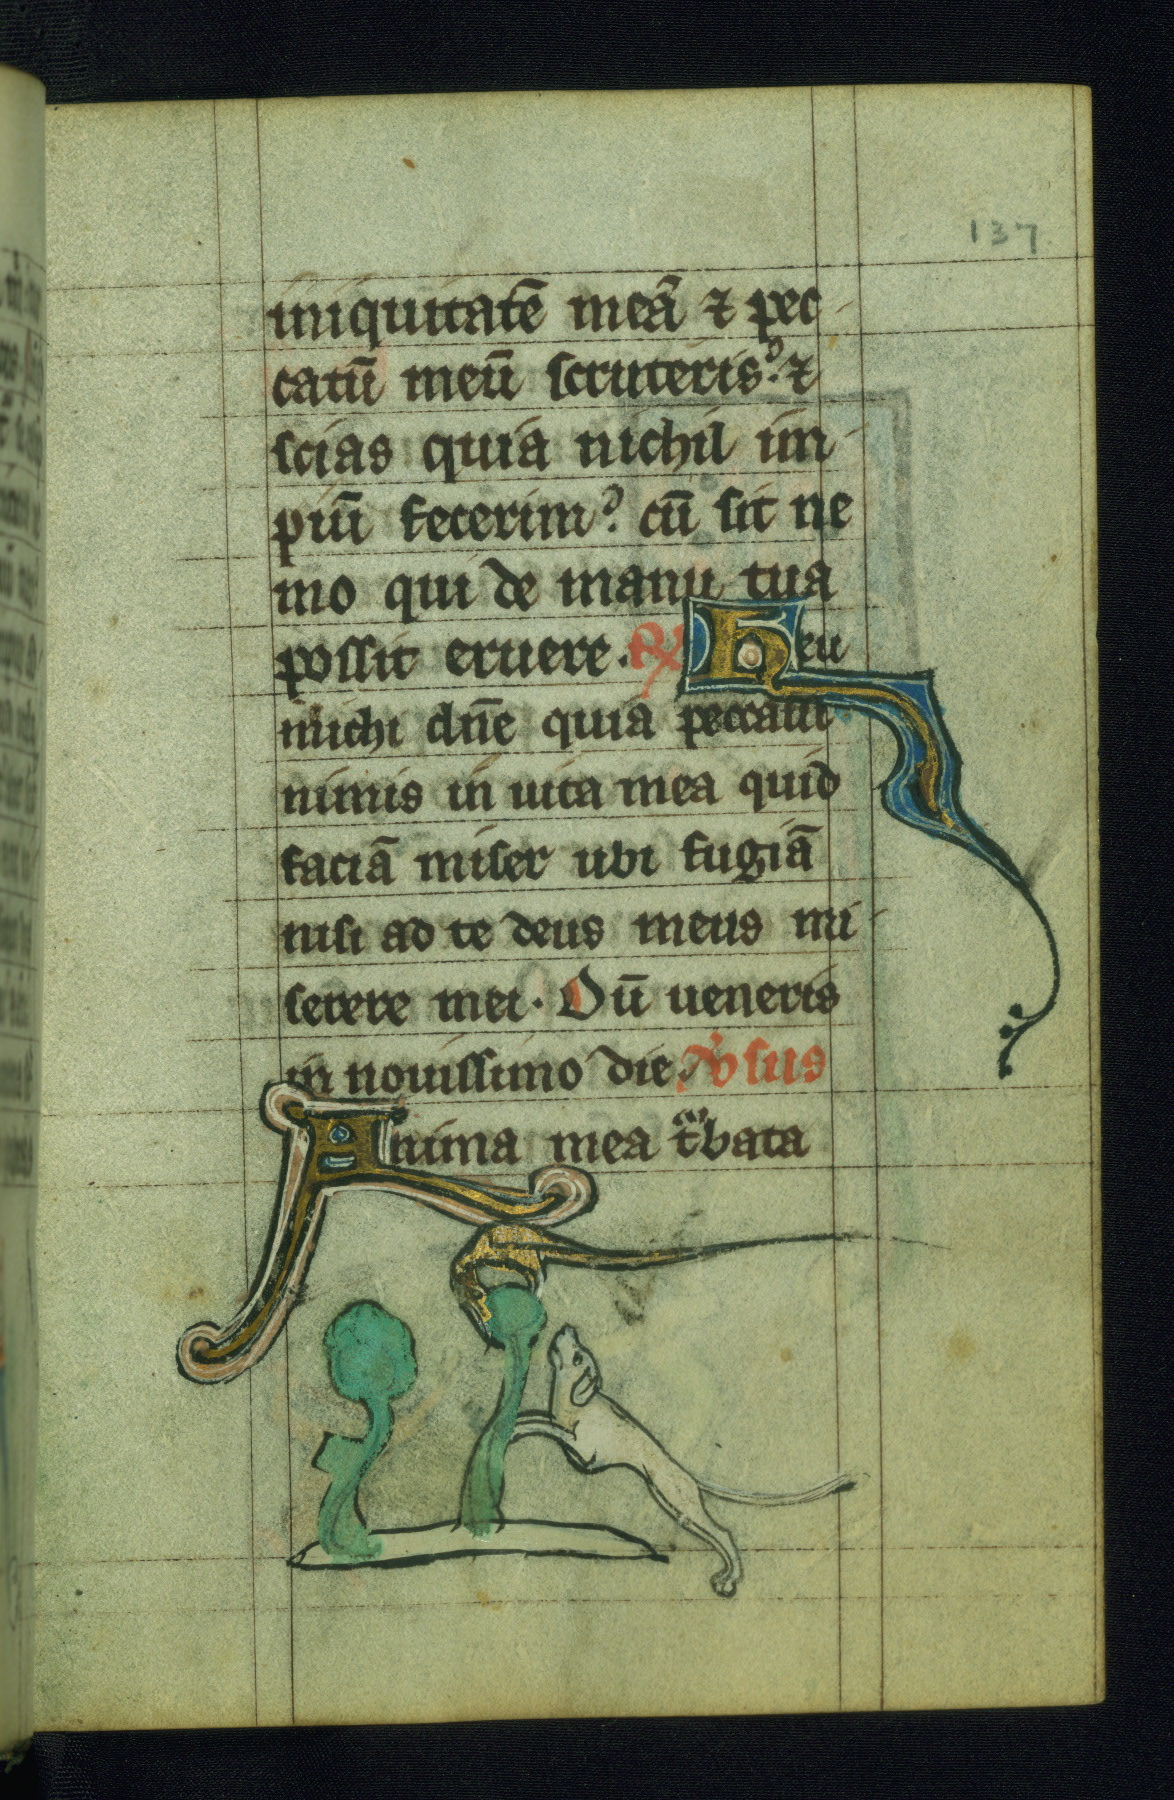 137
iniquitatē meā ⁊ pec
catū meū scruteris? ⁊
scias quia nichil im
piū fecerim? cū sit ne
mo qui de manu tua
possit eruere. ℟ Heu
michi dn̄e quia peccaui
nimis in uita mea quid
faciā miser ubi fugiā
nisi ad te deus meus mi
serere mei. Dū ueneris
in nouissimo die. v̉sus
Anima mea tͣbata